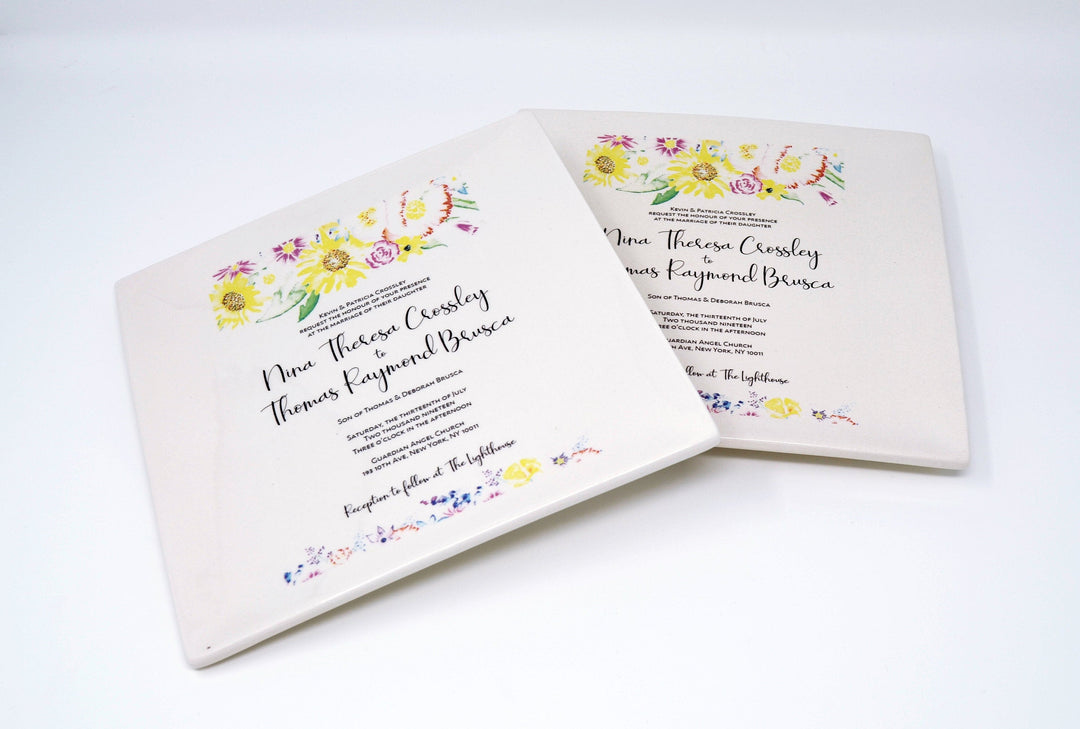 Kevin & Patricia Crossley
request the honour of your presence
at the marriage of their daughter
Nina Theresa Crossley
to
Thomas Raymond Brusca
Son of Thomas & Deborah Brusca
Saturday, the thirteenth of July
Two thousand nineteen
Three o'clock in the afternoon
Guardian Angel Church
193 10th Ave, New York, NY 10011
Reception to follow at The Lighthouse
Kevin & Patricia Crossley
request the honour of your presence
at the marriage of their daughter
Nina Theresa Crossley
to
mas Raymond Brusca
Son of Thomas & Deborah Brusca
Saturday, the thirteenth of July
Two thousand nineteen
o'clock in the afternoon
Guardian Angel Church
th Ave, New York, NY 10011
llow at The Lighthouse